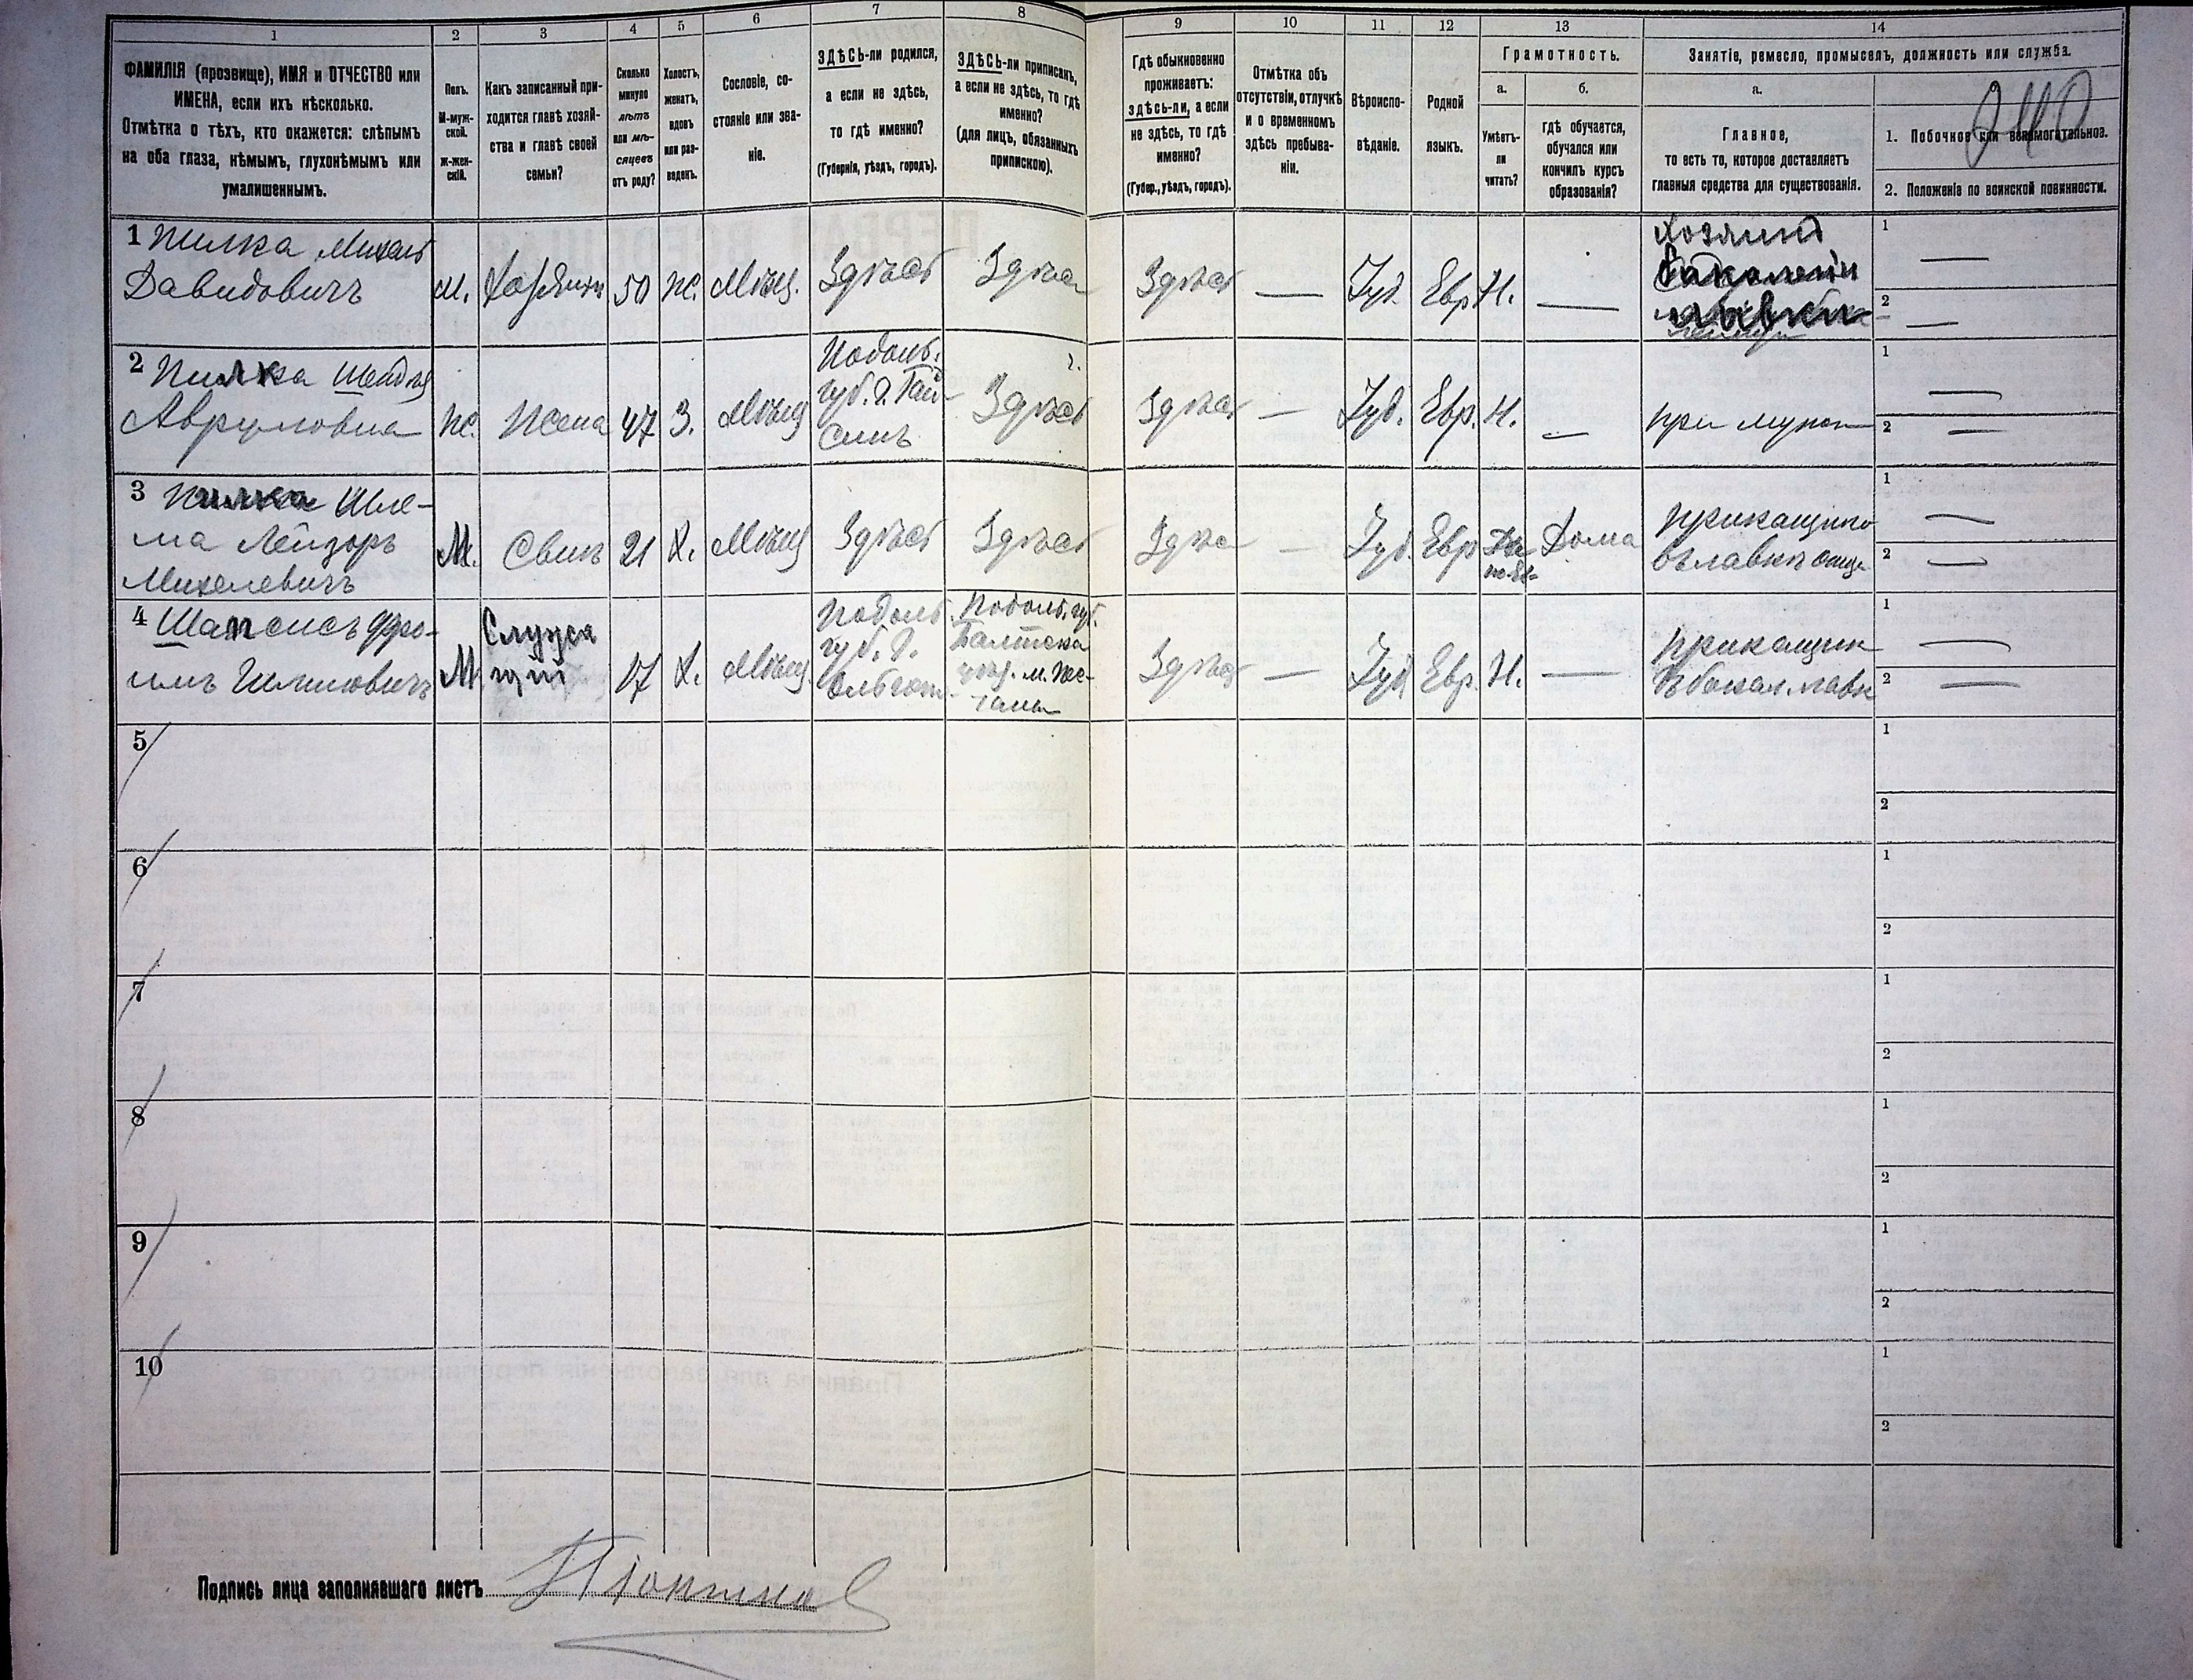 1 2 3 4 5 6 7 8 9 10 11 12 13 14
ФАМИЛІЯ (прозвище), ИМЯ и ОТЧЕСТВО или
ИМЕНА, если ихъ нѣсколько.
Отмѣтка о тѣхъ, кто окажется: слѣпымъ
на оба глаза, нѣмымъ, глухонѣмымъ или
умалишеннымъ.
Полъ.
М-муж-
ской.
ж-жен-
скій.
Какъ записанный при-
ходится главѣ хозяй-
ства и главѣ своей
семьи?
Сколько
минуло
лѣтъ
или мѣ-
сяцевъ
отъ роду?
Холостъ,
женатъ,
вдовъ
или раз-
веденъ.
Сословіе, со-
стояніе или зва-
ніе.
ЗДѢСЬ-ли родился,
а если не здѣсь,
то гдѣ именно?
(Губернія, уѣздъ, городъ).
ЗДѢСЬ-ли приписанъ,
а если не здѣсь, то гдѣ
именно?
(для лицъ, обязанныхъ
припискою).
Гдѣ обыкновенно
проживаетъ:
здѣсь-ли, а если
не здѣсь, то гдѣ
именно?
(Губер., уѣздъ, городъ).
Отмѣтка объ
отсутствіи, отлучкѣ
и о временномъ
здѣсь пребыва-
ніи.
Вѣроиспо-
вѣданіе.
Родной
языкъ.
Грамотность.
а.
Умѣетъ-
ли
читать?
б.
гдѣ обучается,
обучался или
кончилъ курсъ
образованія?
Занятіе, ремесло, промыселъ, должность или служба.
а.
Главное,
то есть то, которое доставляетъ
главныя средства для существованія.
1. Побочное или вспомогательное.
2. Положеніе по воинской повинности.
1 Пилка Михель
Давидовичъ
М. Хозяинъ 50 Ж. Мѣщ. Здѣсь Здѣсь Здѣсь — Іуд. Евр. Н. —
Хозяинъ
Бакалейн
лавки
1 —
2 —
2 Пилка Шейндля
Аврумовна
Ж. Жена 47 З. Мѣщ
Подоль.
губ. г. Гай-
синъ
Здѣсь Здѣсь — Іуд. Евр. Н. — при мужѣ
1 —
2 —
3 Пилка Шле-
ма Лейзоръ
Михелевичъ
М. Сынъ 21 Х. Мѣщ Здѣсь Здѣсь Здѣс — Іуд. Евр Дома
прикащико
въ лавкѣ отца
1 —
2 —
4 Шапсисъ Фро-
имъ Шмилевичъ
М. Служа
щій
17 Х. Мѣщ.
Подоль
губ. г.
Ольгоп.
Подоль. губ.
Балтска
уѣз. м.
Здѣсь — Іуд Евр. Н. —
прикащик
въ бакал. лавк
1 —
2 —
5 1
2
6 1
2
7 1
2
8 1
2
9 1
2
10 1
2
Подпись лица заполнявшаго листъ